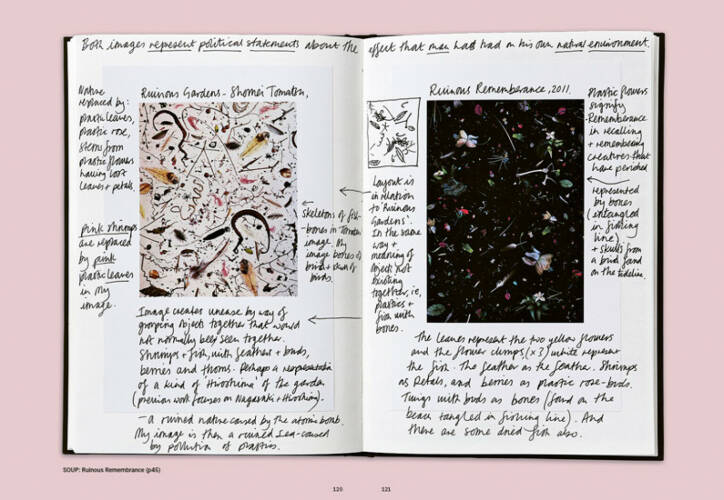 Both images represent political statements about the effect that man has had on his own natural environment.
Nature
replaced by:
plastic leaves,
plastic rose,
stems from
plastic flowers
having lost
leaves + petals.
pink shrimps
are replaced
by pink
plastic leaves
in my
image.
Ruinous Gardens - Shomei Tomatsu,
Skeletons of fish
-bones in Tomatsu
image. My
image bones of
birds + skull of
birds.
Image creates unease by way of
grouping objects together that would
not normally be seen together.
Shrimps + fish, with feathers + buds,
berries and thorns. Perhaps a representation
of a kind of 'Hiroshima' of the garden
(previous work focuses on Nagasaki + Hiroshima).
- a ruined nature caused by the atomic bomb.
My image is then a ruined sea - caused
by pollution of plastics.
Ruinous Rememberance, 2011.
Layout is
in relation
to 'Ruinous
Gardens'.
In the same
way +
meaning of
objects not
existing
together, ie,
plastics +
fish with
bones.
Plastic flowers
signify
Rememberance
in recalling
+ remembering
creatures that
have perished.
represented
by bones
(intangled
in fishing
line)
+ skulls from
a bird found
on the tideline.
The leaves represent the two yellow flowers
and the flower clumps (x3) white represent
the fish. The feather as the feather. Shrimps
as Petals, and berries as plastic rose-buds.
Twigs with buds as bones (found on the
beach tangled in fishing line). And
there are some dried fish also.
SOUP: Ruinous Remembrance (p45)
120
121